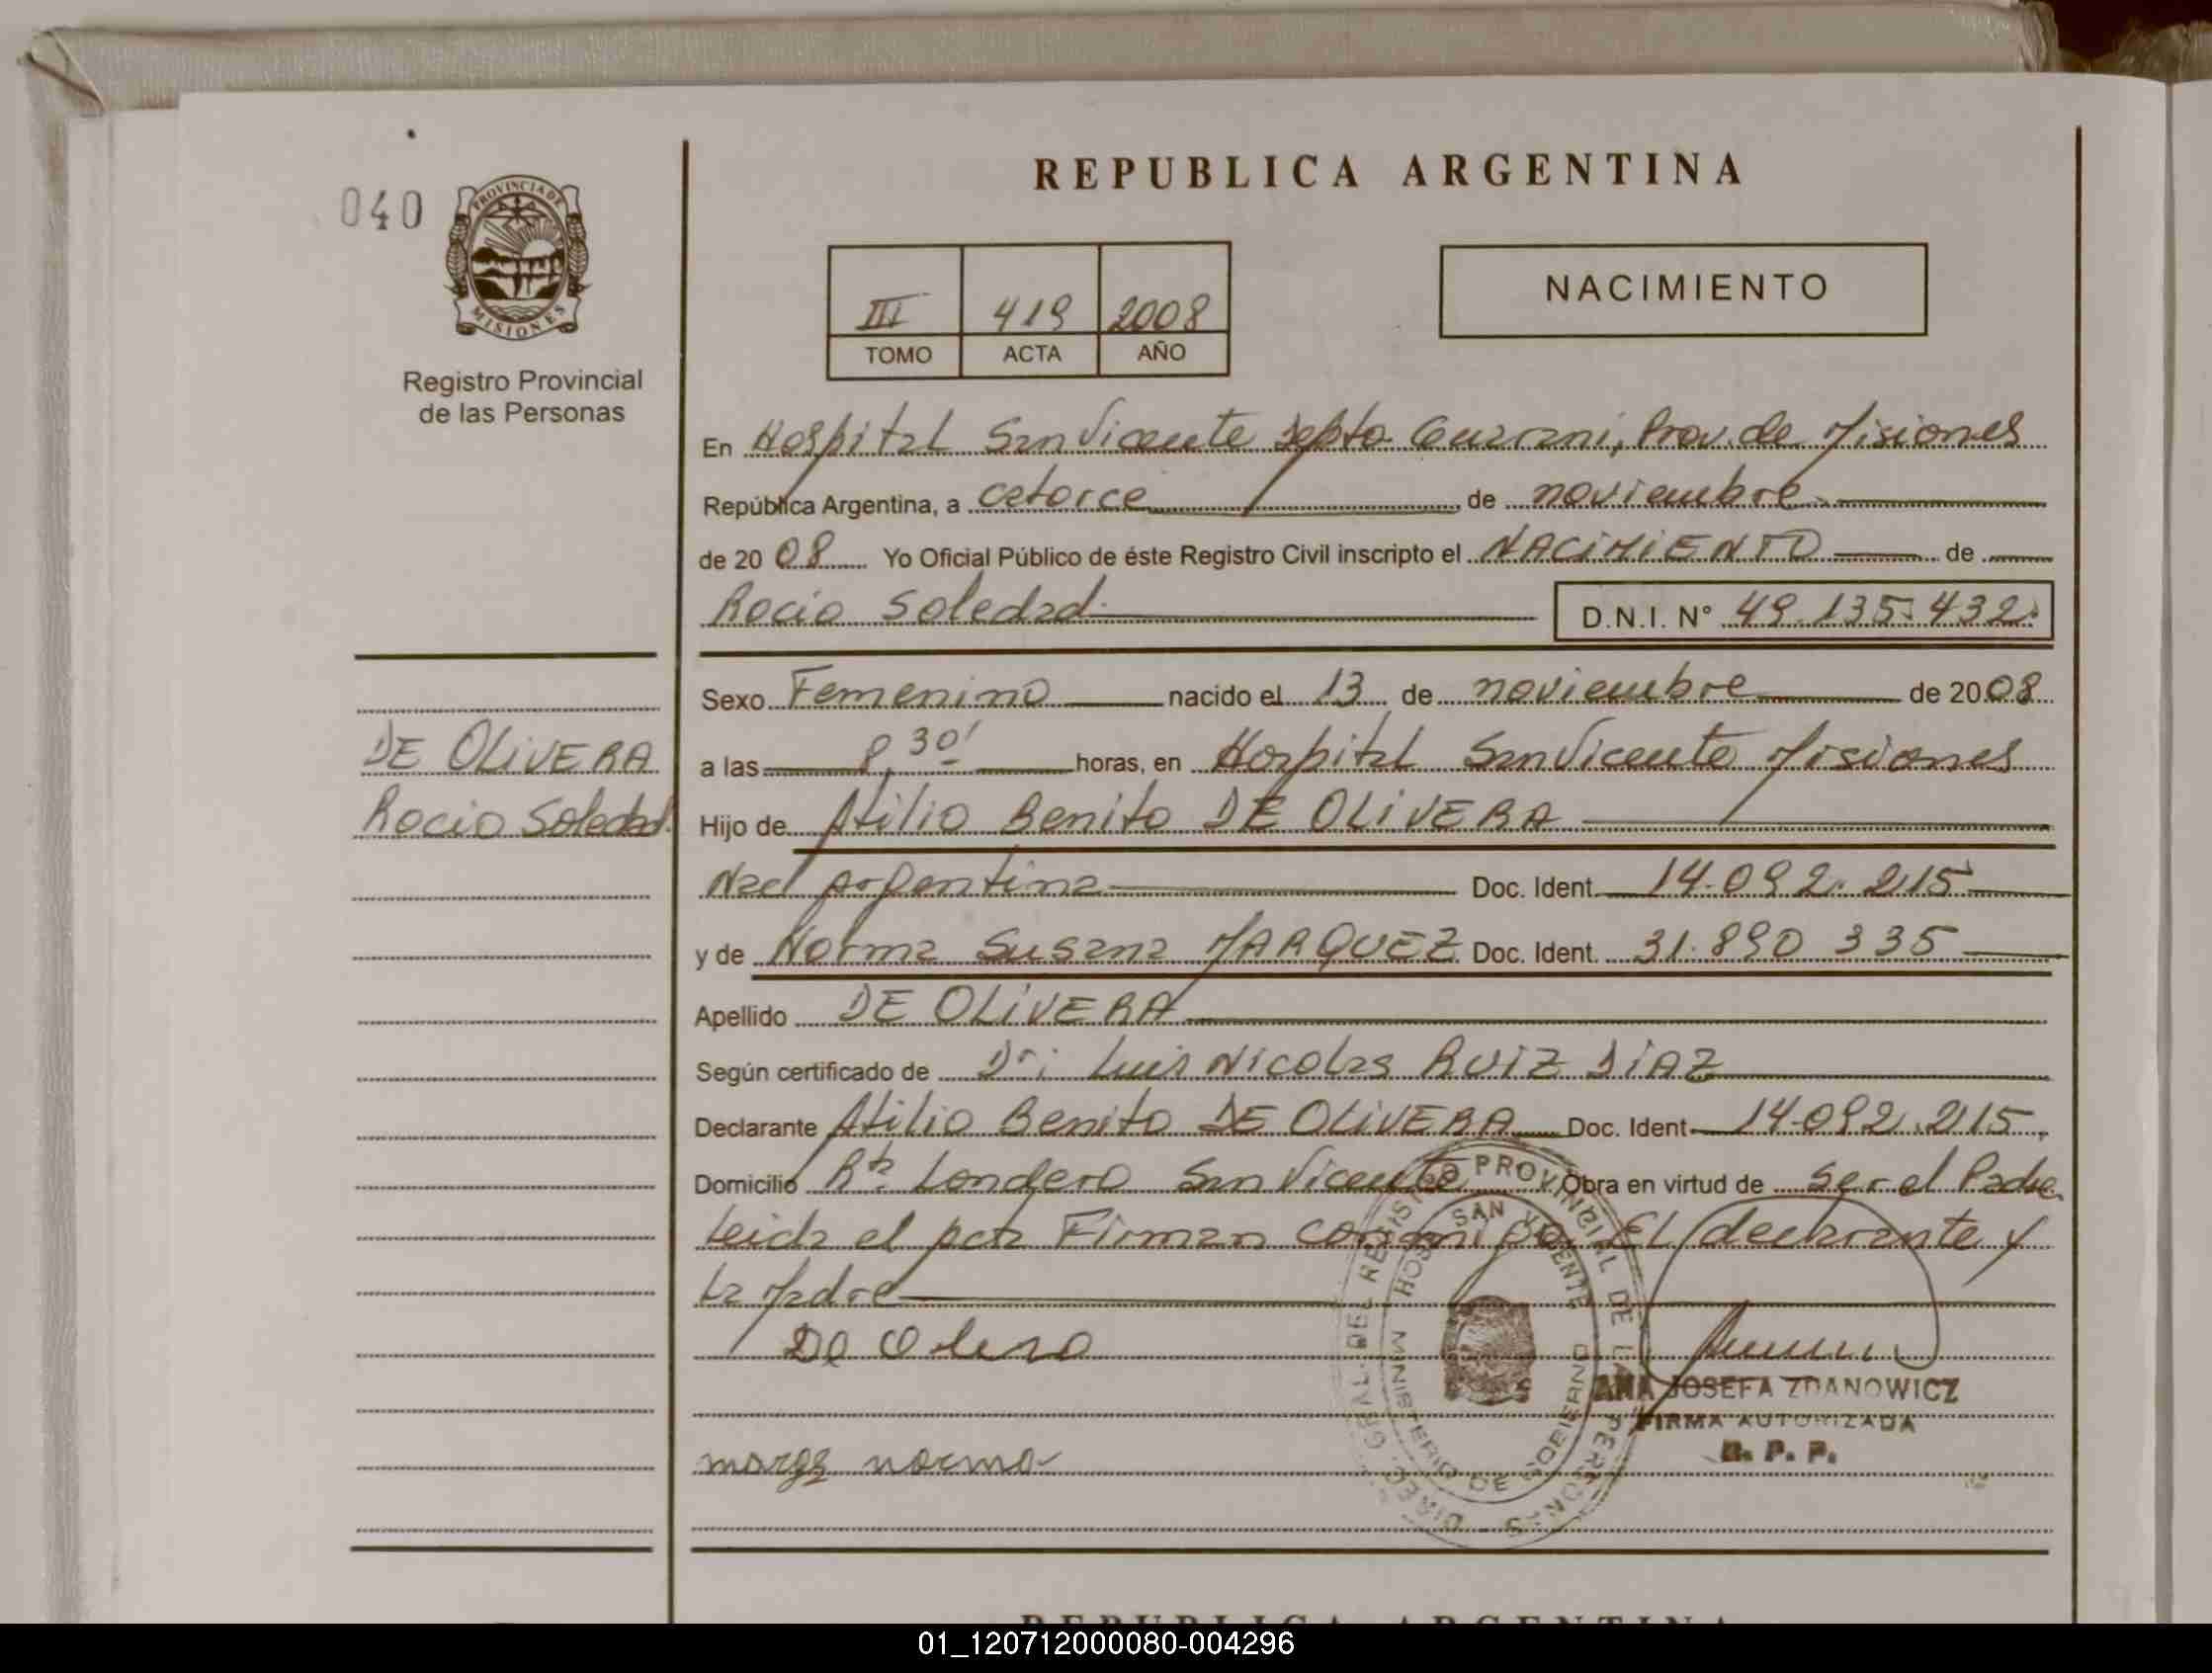 REPUBLICA ARGENTINA
040
PROVINCIA DE MISIONES
Registro Provincial
de las Personas
III 419 2008
TOMO ACTA AÑO
NACIMIENTO
En Hospital San Vicente Depto Guarani, Prov. de Misiones
República Argentina, a catorce de noviembre
de 20 08 Yo Oficial Público de éste Registro Civil inscripto el NACIMIENTO de
Rocio Soledad D.N.I. N° 49.135.432
Sexo Femenino nacido el 13 de noviembre de 20 08
DE OLIVERA
Rocio Soledad
a las 8,30' horas, en Hospital San Vicente Misiones
Hijo de Atilio Benito DE OLIVERA
Nac Argentina Doc. Ident. 14.092.215
y de Norma Susana MARQUEZ Doc. Ident. 31.890 335
Apellido DE OLIVERA
Según certificado de Dr: Luis Nicolas RUIZ DIAZ
Declarante Atilio Benito DE OLIVERA Doc. Ident 14.092.215
Domicilio Bº Londero San Vicente Obra en virtud de ser el Padre
Leida el acta Firman conmigo EL declarante y
La Madre
De Olivera
marqs norma
DIREC. GRAL. DEL REGISTRO PROVINCIAL DE LAS PERSONAS
HOSP SAN VICENTE
MINISTERIO DE GOBIERNO
ANA JOSEFA ZDANOWICZ
FIRMA AUTORIZADA
R. P. P.
REPUBLICA ARGENTINA
01_120712000080-004296